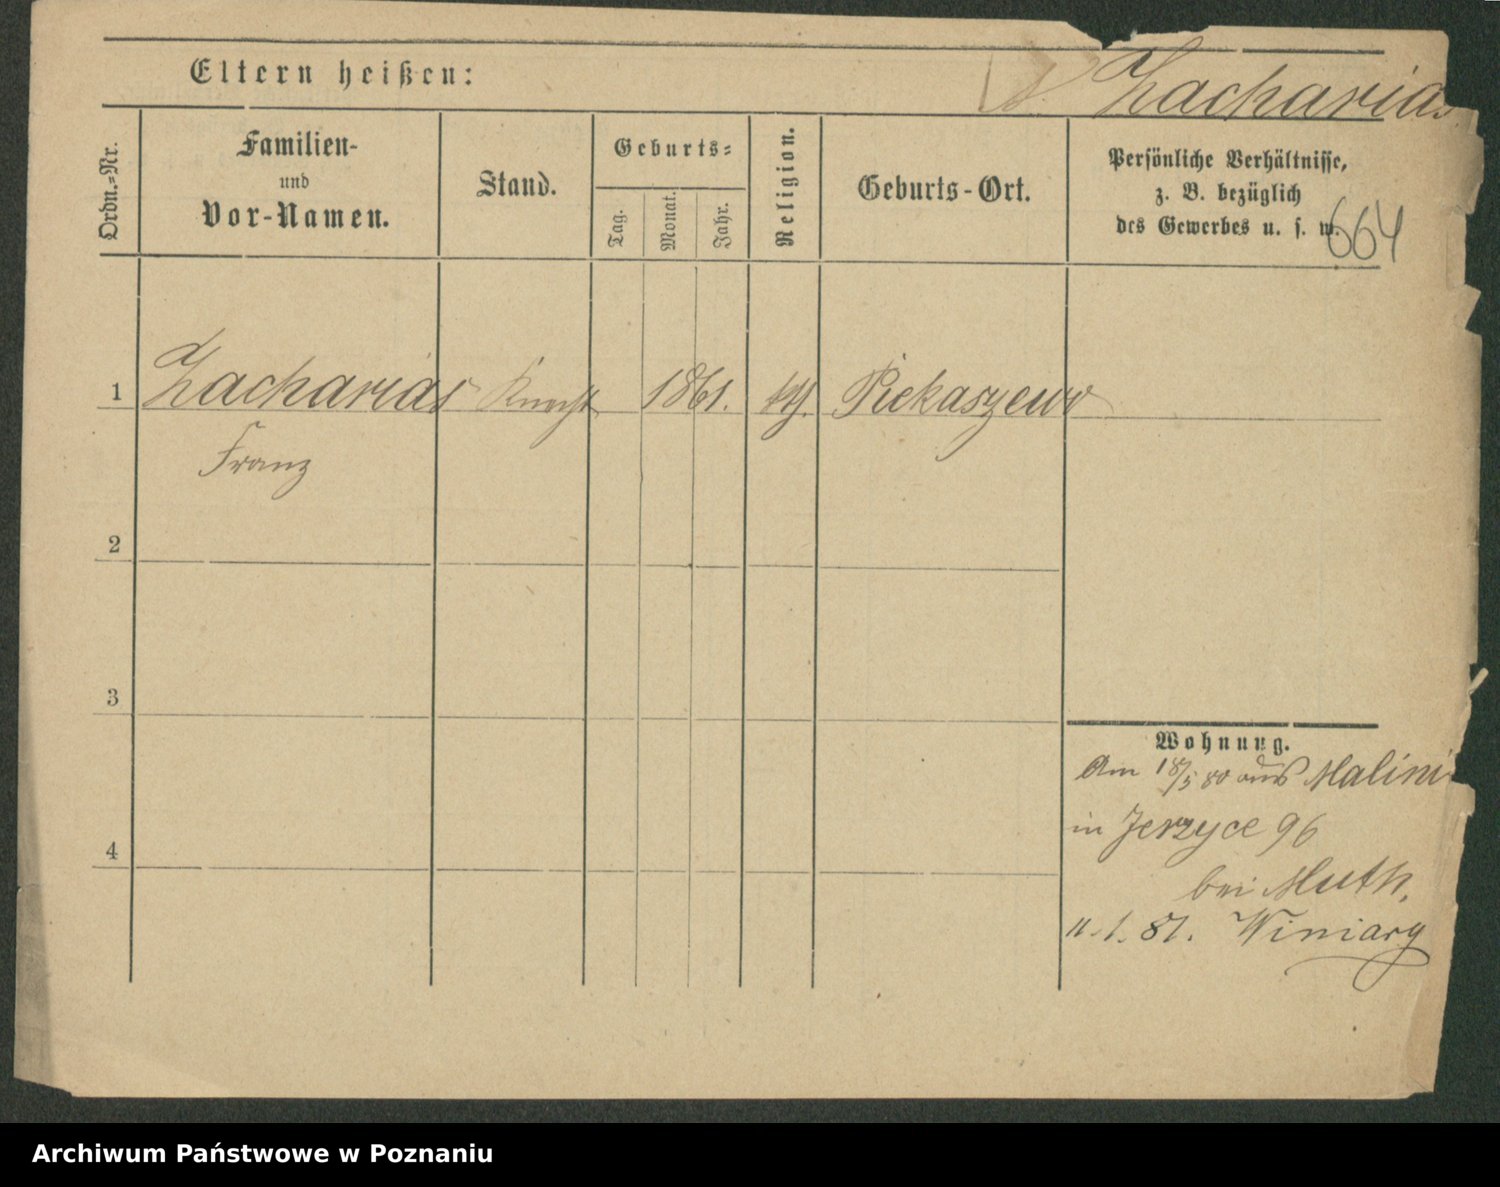 Eltern heißen:
Zacharias
Ordn.=Nr.
Familien-
und
Vor-Namen.
Stand.
Geburts=
Tag.
Monat.
Jahr.
Religion.
Geburts-Ort.
Persönliche Verhältnisse,
z. B. bezüglich
des Gewerbes u. s. w.
664
1 Zacharias Knecht 1861. Piekaszewo
Franz
2
3
4
Wohnung.
Am 18/5 80 aus Malini
in Jerzyce 96
bei Muth.
11.1.81. Winiary
Archiwum Państwowe w Poznaniu